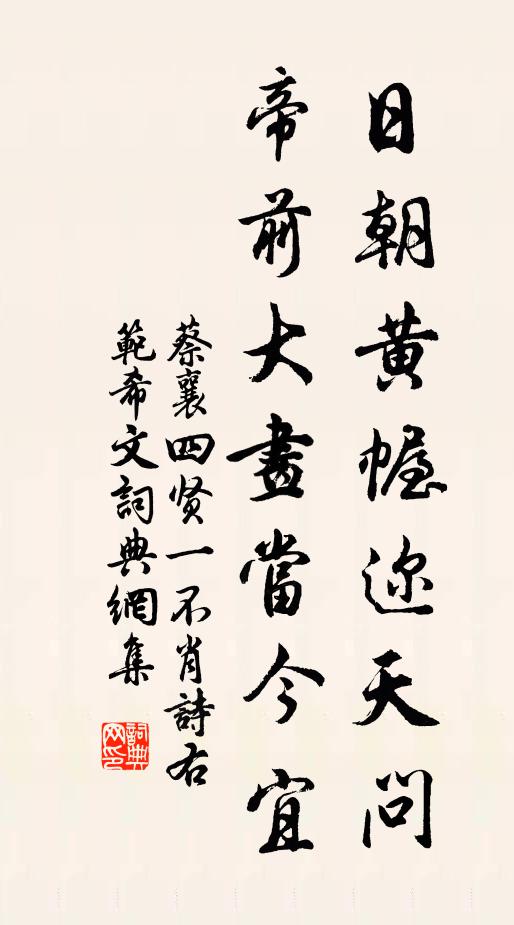 日朝黄幄迩天問
帝前大畫當今宜
蔡襄四贤一不肖詩右
範希文詞典網集
詞典网印